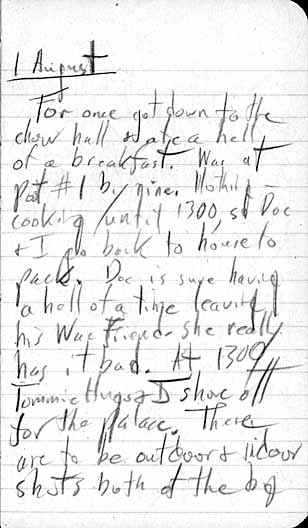 1 August
For once got down to the
chow hall & ate a hell
of a breakfast. Was at
pot #1 by nine. Nothing
cooking until 1300, so Doc
& I go back to house to
pack. Doc is sure having
a hell of a time leaving
his Wac friend. She really
has it bad. At 1300
Tommie Hugs & I shove off
for the Palace. There
are to be outdoor & indoor
shots both of the big